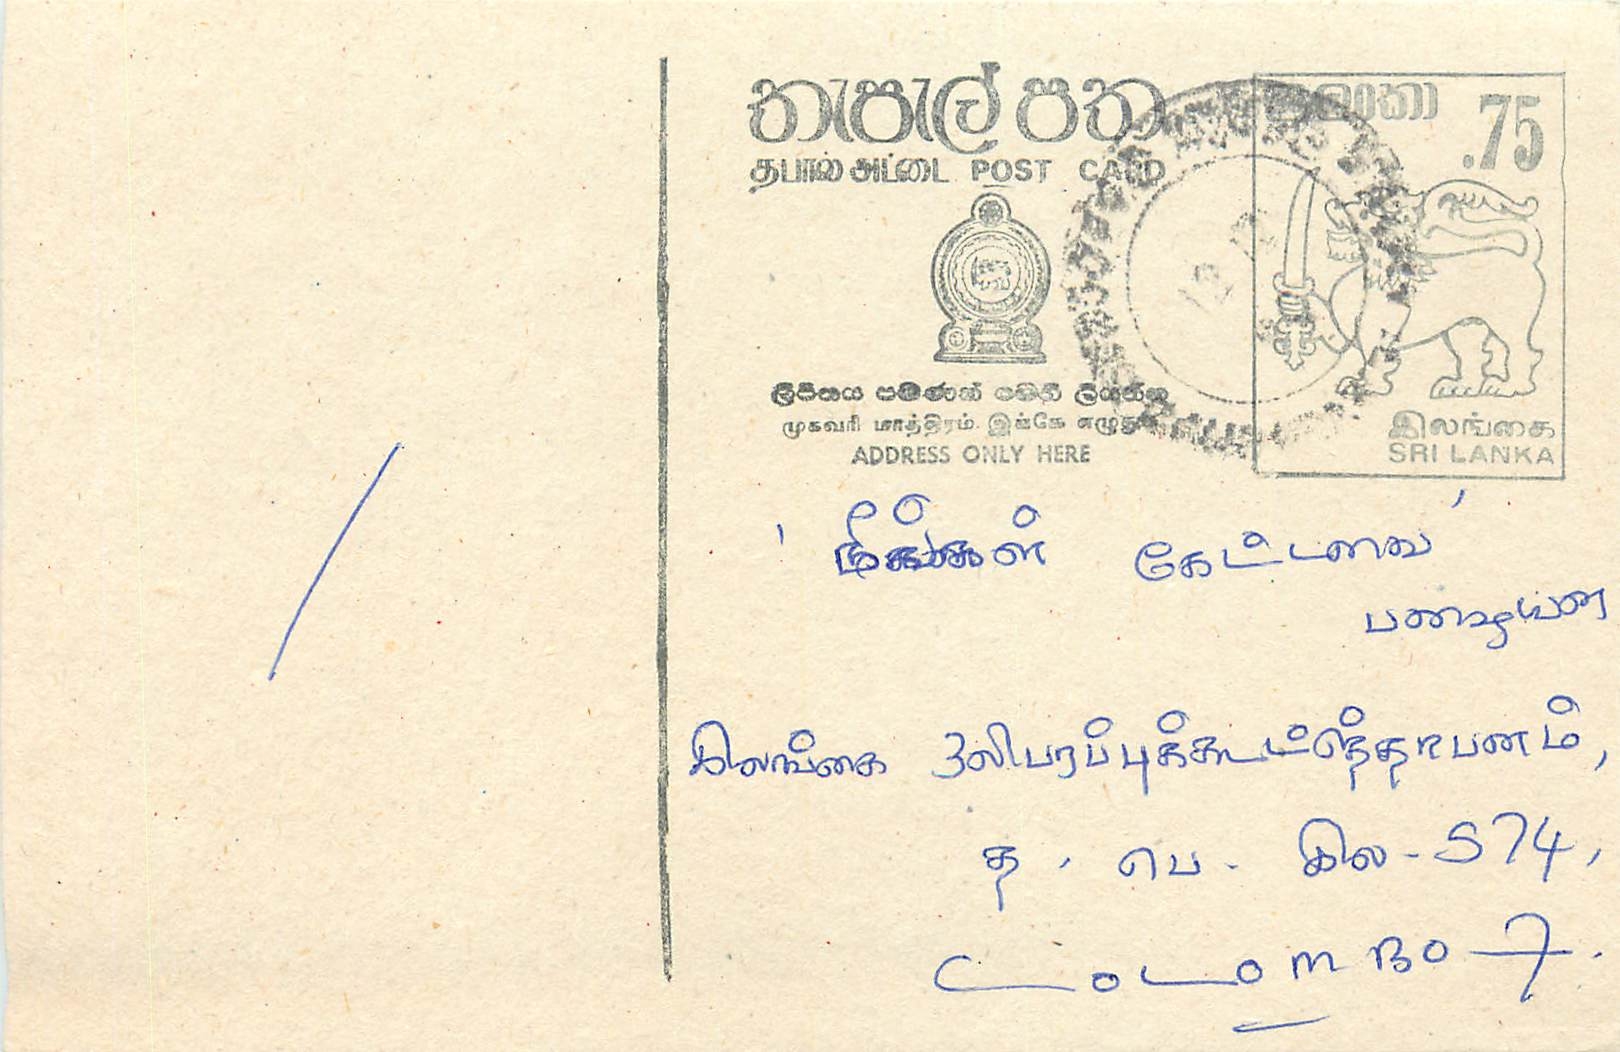 තැපැල් පත
தபால் அட்டை POST CARD
ලංකා .75
ලිපිනය පමණක් මෙහි ලියන්න
முகவரி மாத்திரம் இங்கே எழுதுக
ADDRESS ONLY HERE
இலங்கை
SRI LANKA
' நீங்கள் கேட்டவை '
இலங்கை ஒலிபரப்புக்கூட்டுத்தாபனம்,
த. பெ. இல - 574,
COLOMBO - 7.